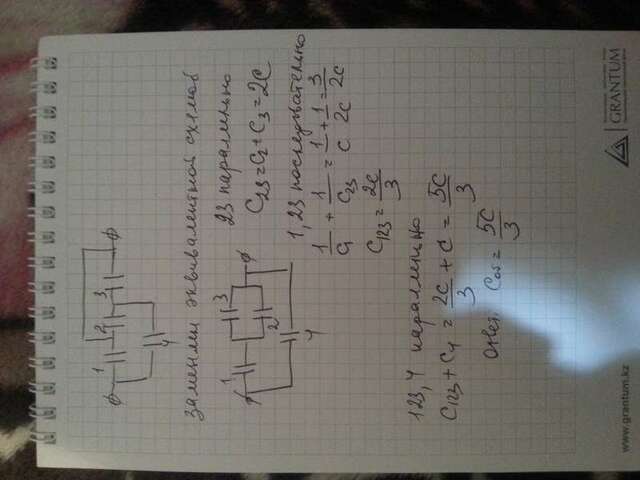 1 2 3
4
Заменим эквивалентной схемой
1 3
2
4
23 параллельно
C23 = C2 + C3 = 2C
1,23 последовательно
1/C1 + 1/C23 = 1/C + 1/2C = 3/2C
C123 = 2C/3
123,4 параллельно
C123 + C4 = 2C/3 + C = 5C/3
Ответ: Cоб = 5C/3
GRANTUM
www.grantum.kz